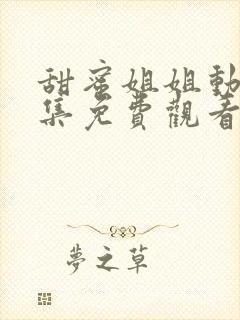 甜蜜姐姐動
集免費觀看
夢之草